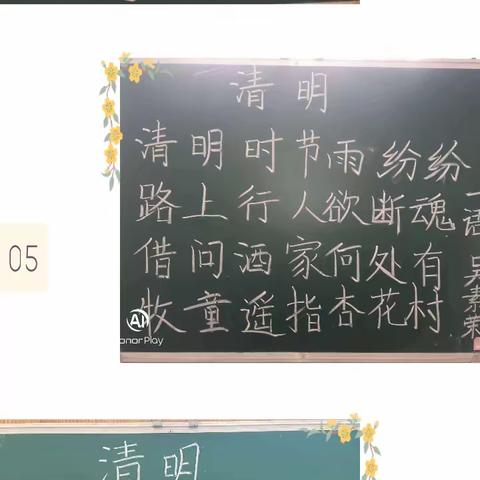 清明
清明时节雨纷纷
路上行人欲断魂
借问酒家何处有
牧童遥指杏花村
一语 吴素荣
05
AI
onor Play
清明